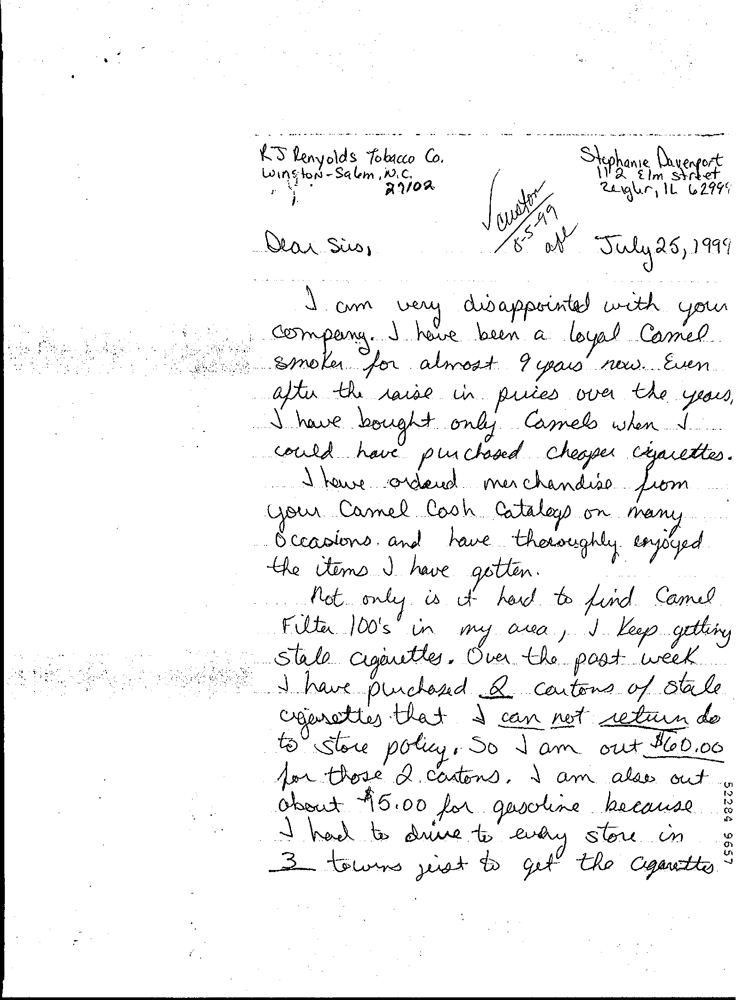 RJ Renyolds Tobacco Co.
Winston-Salem, N.C.
27102
Stephanie Davenport
112 Elm Street
Zeigler, IL 62999
custom
8-5-99
Dear Sirs,
July 25, 1999
I am very disappointed with your
company. I have been a loyal Camel
smoker for almost 9 years now. Even
after the raise in prices over the years,
I have bought only Camels when I
could have purchased cheaper cigarettes.
I have ordered merchandise from
your Camel Cash Catalogs on many
occasions and have thoroughly enjoyed
the items I have gotten.
Not only is it hard to find Camel
Filter 100's in my area, I keep getting
stale cigarettes. Over the past week
I have purchased 2 cartons of stale
cigarettes that I can not return do
to store policy. So I am out $60.00
for those 2 cartons. I am also out
about $15.00 for gasoline because
I had to drive to every store in
3 towns just to get the cigarettes
52284 9657